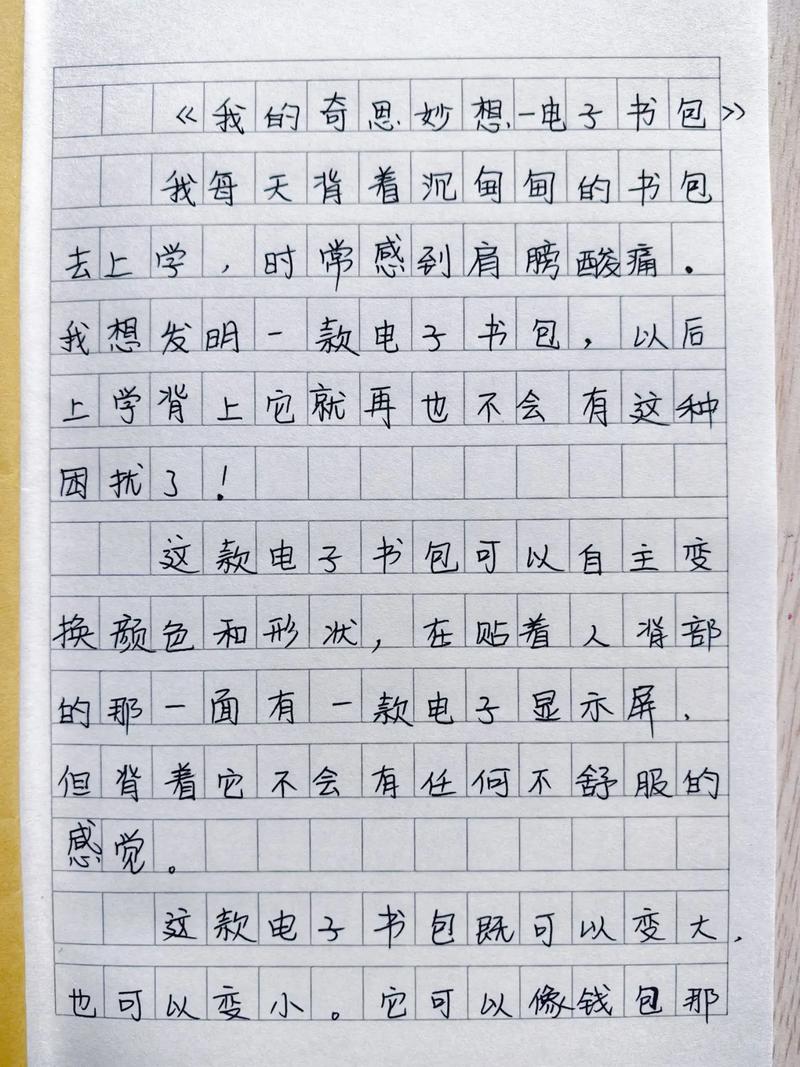 《我的奇思妙想-电子书包》
我每天背着沉甸甸的书包
去上学，时常感到肩膀酸痛。
我想发明一款电子书包，以后
上学背上它就再也不会有这种
困扰了！
这款电子书包可以自主变
换颜色和形状，在贴着人背部
的那一面有一款电子显示屏，
但背着它不会有任何不舒服的
感觉。
这款电子书包既可以变大，
也可以变小。它可以像钱包那